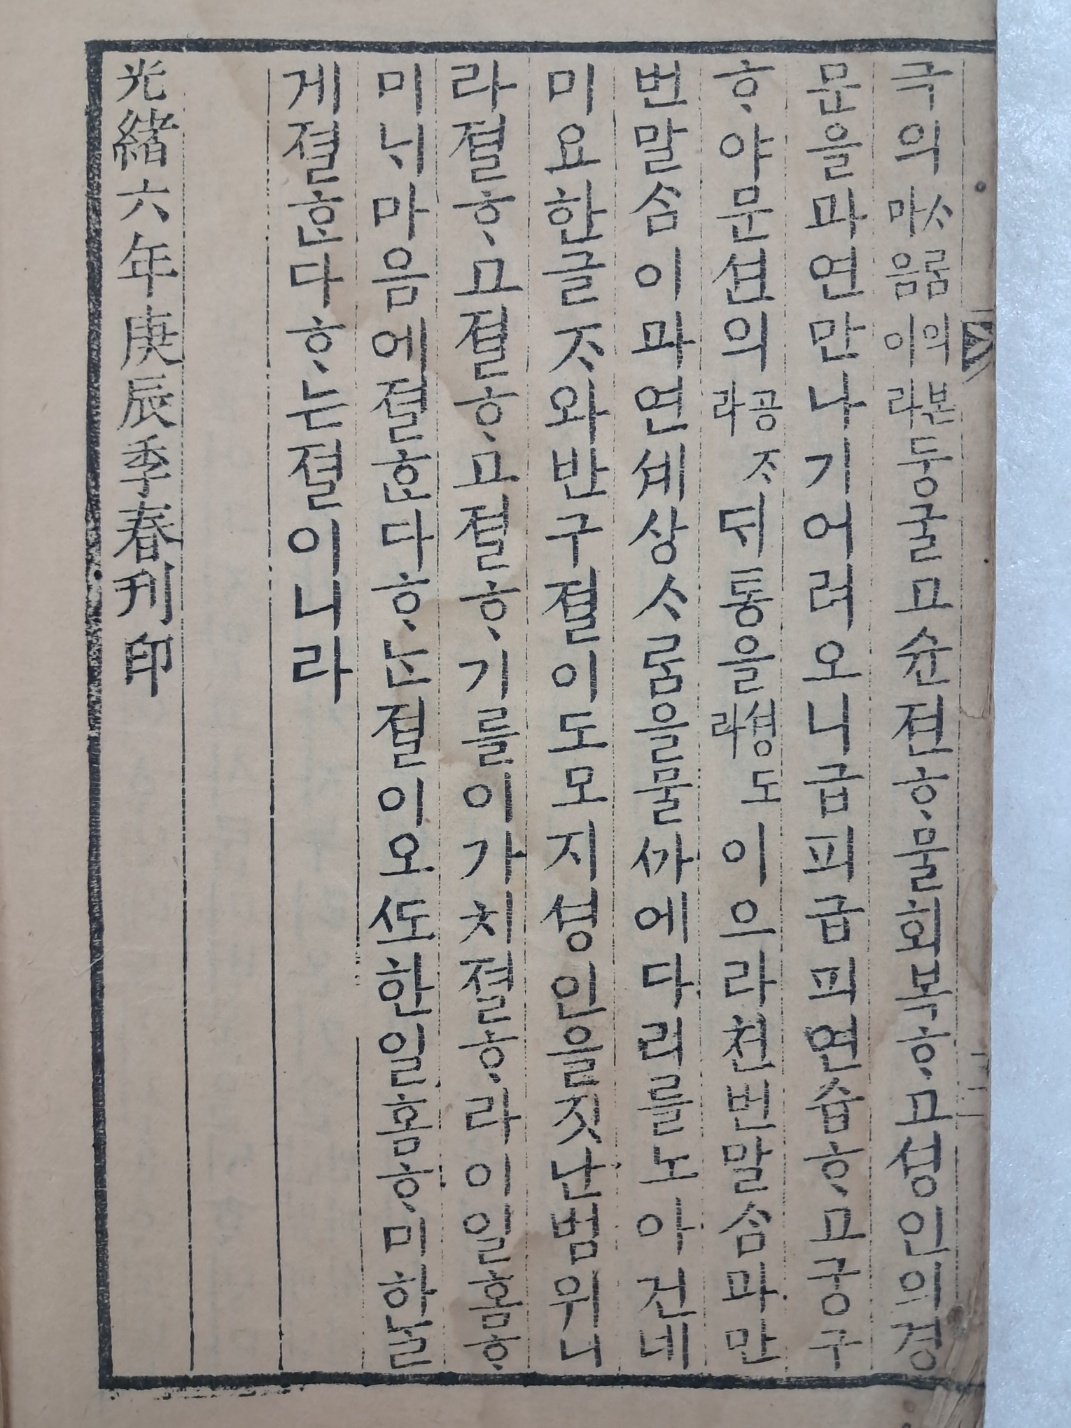 극의ᄉᆞᄅᆞᆷ의본마음이라둥굴고슌젼ᄒᆞ물회복ᄒᆞ고셩인의경
문을마연만나기어려오니급피급피연습ᄒᆞ고궁구
ᄒᆞ야문션의공ᄌᆞ라되통을셩도라이으라쳔번말ᄉᆞᆷ마만
번말ᄉᆞᆷ이마연셰상ᄉᆞᄅᆞᆷ을물ᄭᅡ에다려를노아건네
미요한글ᄌᆞ와반구졀이도모지셩인을짓난범위니
라졀ᄒᆞ고졀ᄒᆞ고졀ᄒᆞ기를이가치졀ᄒᆞ라이일홈ᄒᆞ
미ᄂᆡ마음에졀ᄒᆞᆫ다ᄒᆞᄂᆞᆫ졀이오ᄯᅩ한일홈ᄒᆞ미하ᄂᆞᆯ
게졀ᄒᆞᆫ다ᄒᆞ는졀이니라
光緖六年庚辰季春刋印